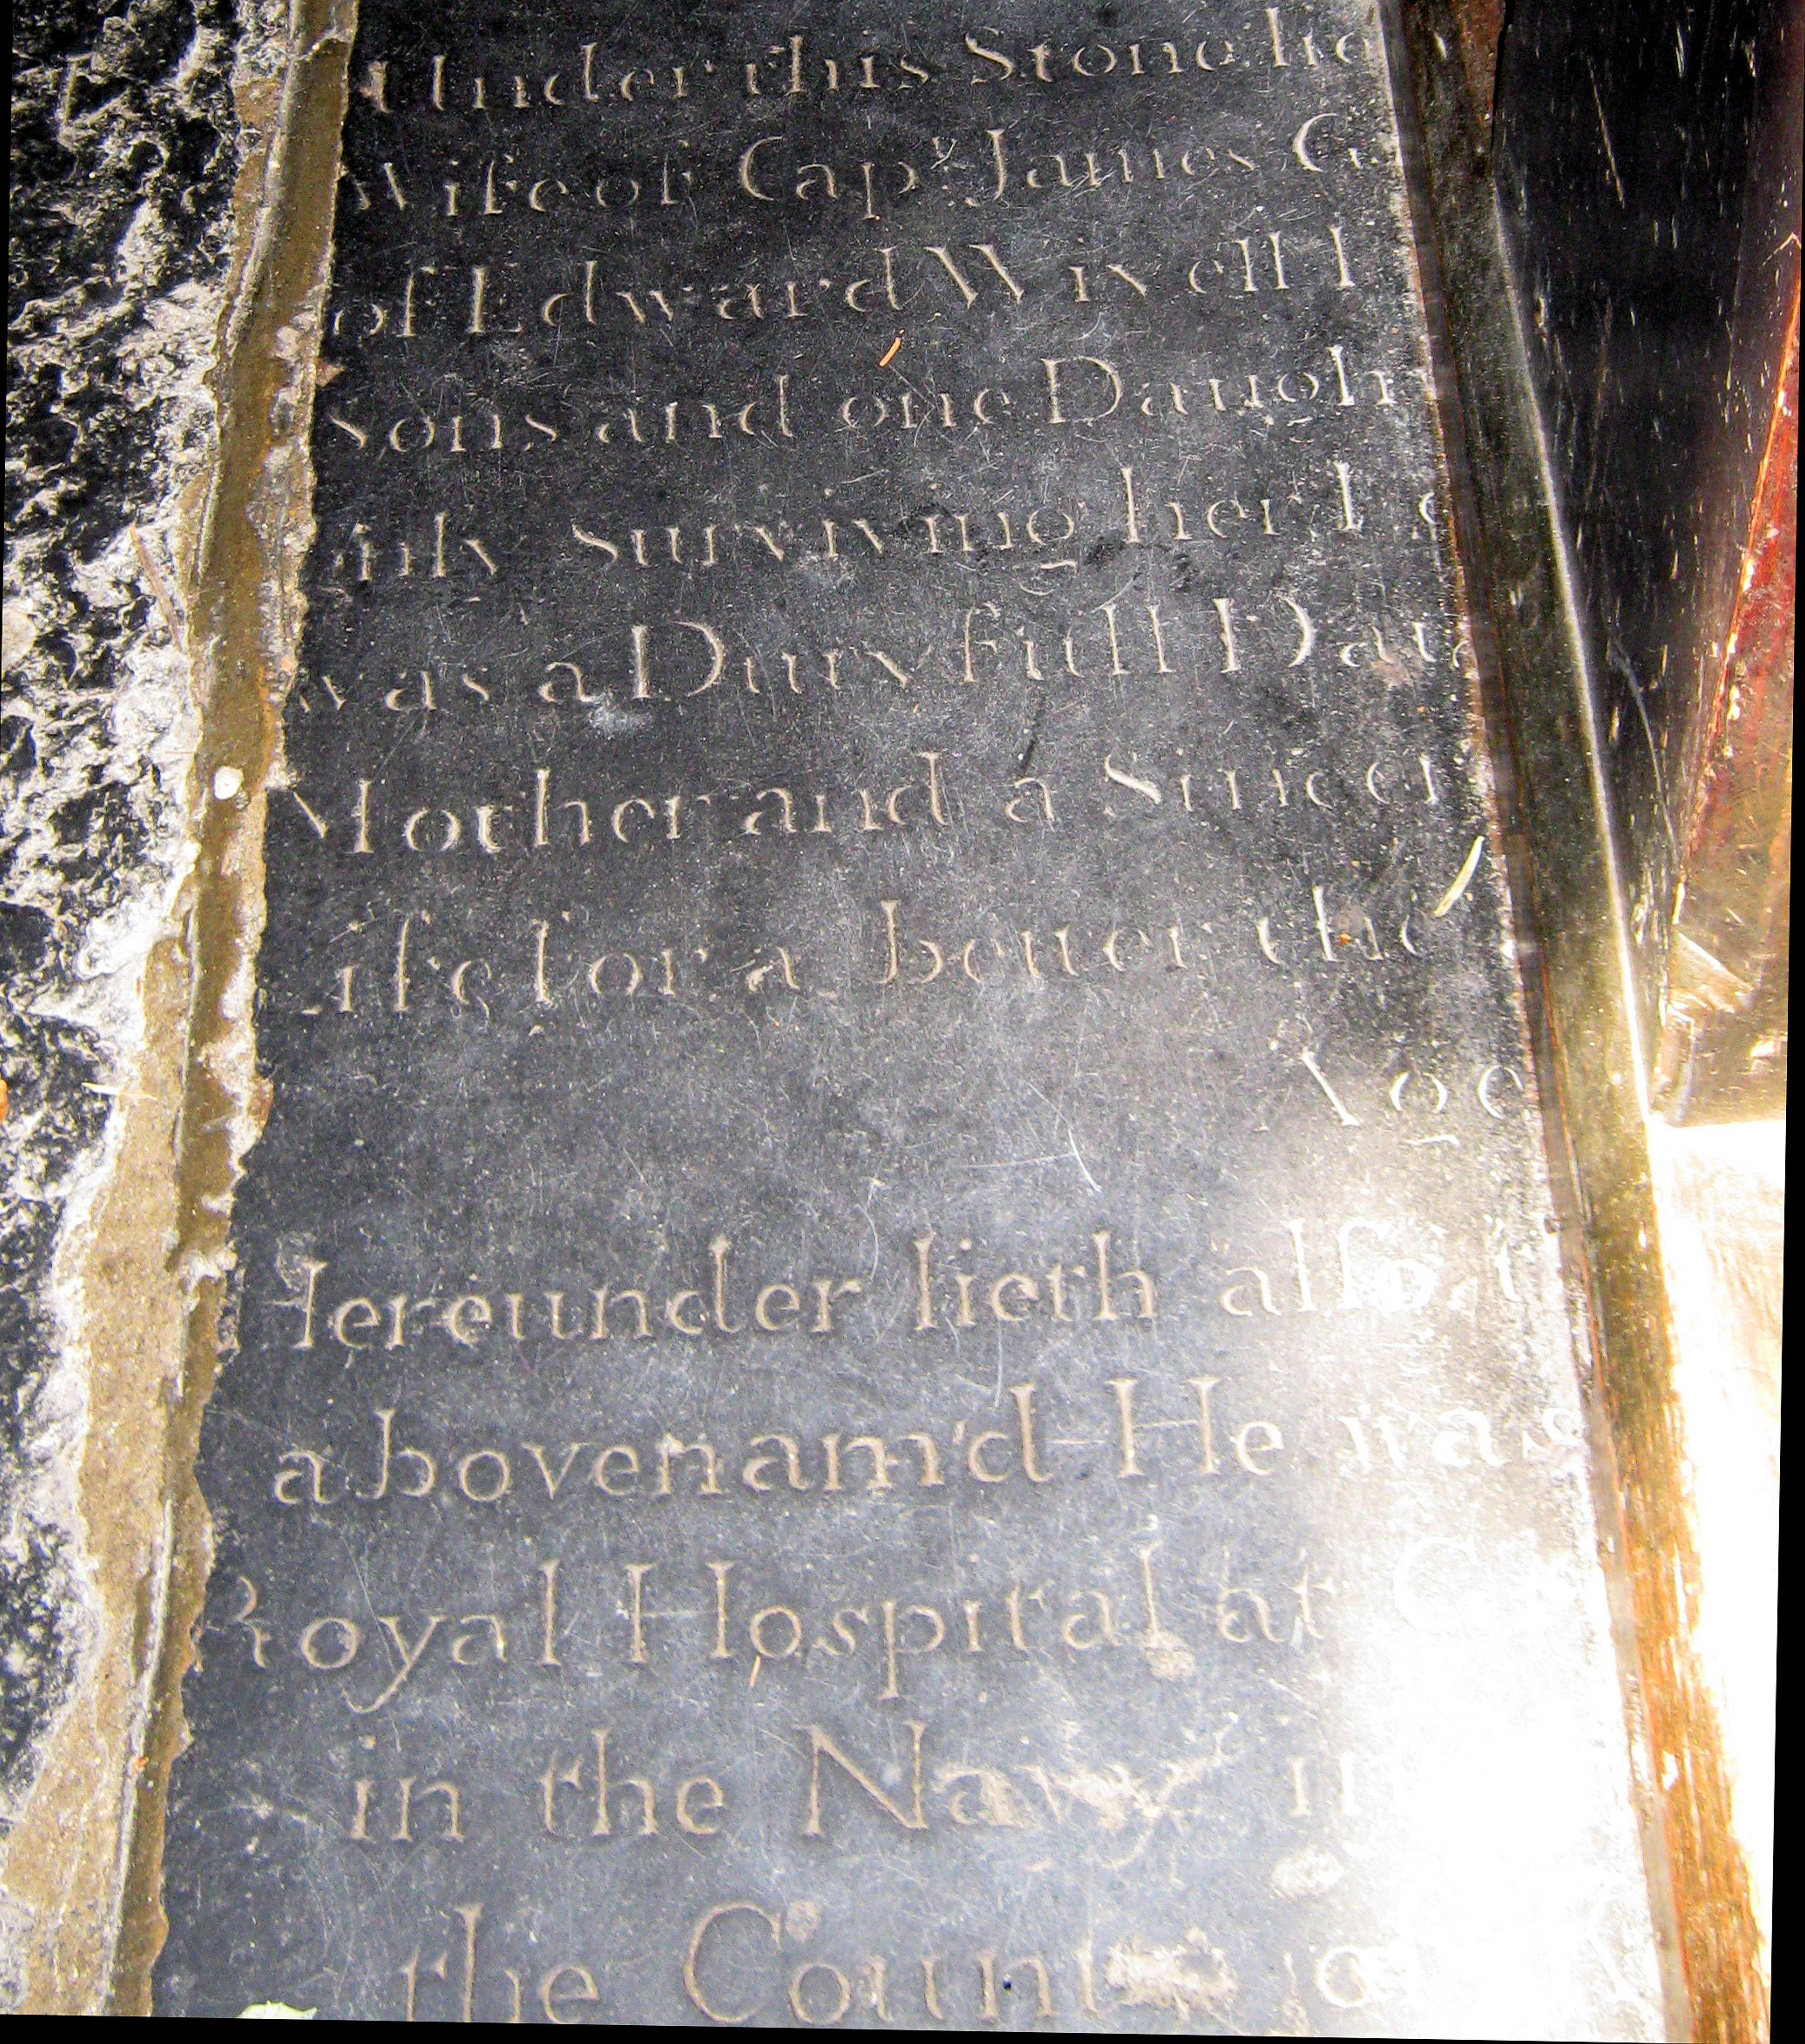 Under this Stone lie
Wife of Capt. James G
of Edward Wivell
sons and one Daugh
only surviving her
was a Duty full Dau
Mother and a Sincer
Life for a better the
Age
Hereunder lieth also
abovenam'd He was
Royal Hospital at
in the Navy
the County of